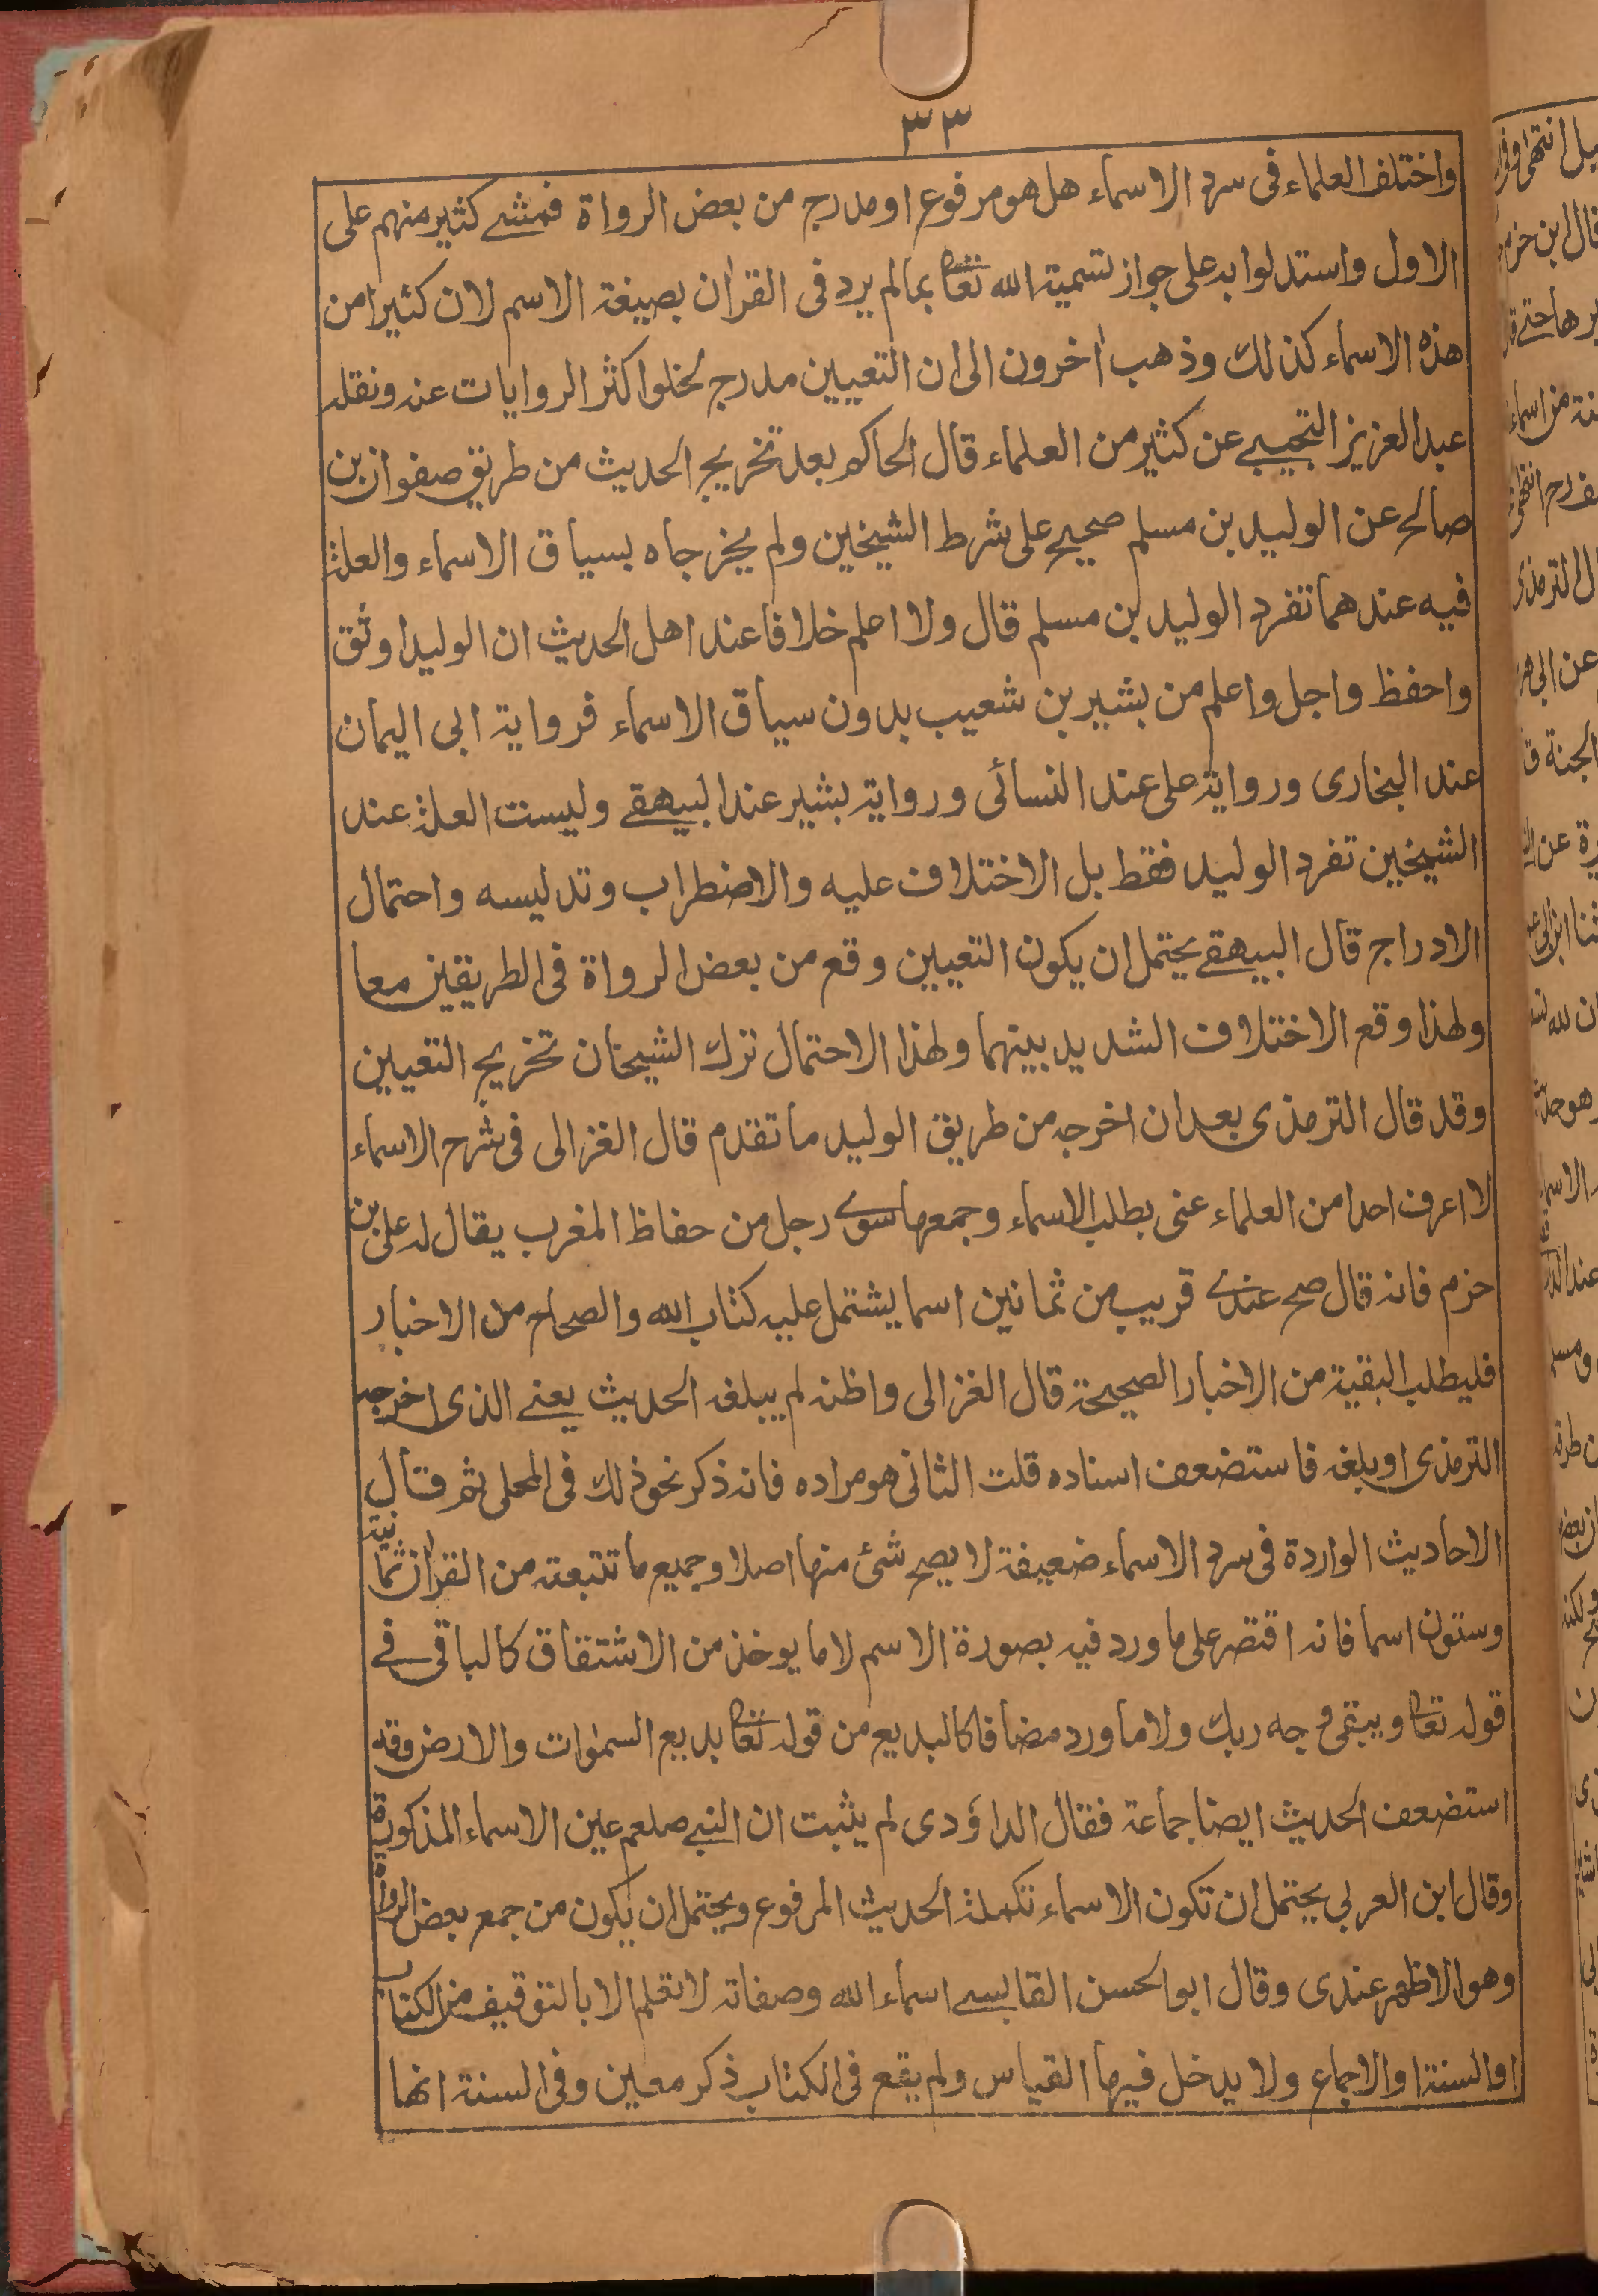 ٣٣
واختلف العلماء فى سرد الاسماء هل هو مرفوع او مدرج من بعض الرواة فمشے كثير منهم على
الاول واستدلوا به على جواز تسمية الله تعا بما لم يرد فى القران بصيغة الاسم لان كثيرا من
هذه الاسماء كذلك وذهب اخرون الى ان التعيين مدرج لخلو اكثر الروايات عنه ونقله
عبد العزيز التجيبے عن كثير من العلماء قال الحاكم بعد تخريج الحديث من طريق صفوان بن
صالح عن الوليد بن مسلم صحيح على شرط الشيخين ولم يخرجاه بسياق الاسماء والعلة
فيه عندهما تفرد الوليد بن مسلم قال ولا اعلم خلافا عند اهل الحديث ان الوليد اوثق
واحفظ واجل واعلم من بشير بن شعيب بدون سياق الاسماء فرواية ابى اليمان
عند البخارى ورواية على عند النسائى ورواية بشير عند البيهقے وليست العلة عند
الشيخين تفرد الوليد فقط بل الاختلاف عليه والاضطراب وتدليسه واحتمال
الادراج قال البيهقے يحتمل ان يكون التعيين وقع من بعض الرواة فى الطريقين معا
ولهذا وقع الاختلاف الشديد بينهما ولهذا الاحتمال ترك الشيخان تخريج التعيين
وقد قال الترمذى بعد ان اخرجه من طريق الوليد ما تقدم قال الغزالى فى شرح الاسماء
لا اعرف احدا من العلماء عنى بطلب الاسماء وجمعها سوے رجل من حفاظ المغرب يقال له على بن
حزم فانه قال صح عندے قريب من ثمانين اسما يشتمل عليه كتاب الله والصحاح من الاخبار
فليطلب البقية من الاخبار الصحيحة قال الغزالى واظنه لم يبلغه الحديث يعنے الذى اخرجه
الترمذى او بلغه فاستضعف اسناده قلت الثانى هو مراده فانه ذكر نحو ذلك فى المحلى ثم قال
الاحاديث الواردة فى سرد الاسماء ضعيفة لا يصح شئ منها اصلا وجميع ما تتبعته من القران ثمانية
وستون اسما فانه اقتصر على ما ورد فيه بصورة الاسم لا ما يوخذ من الاشتقاق كالباقى فے
قوله تعا ويبقى وجه ربك ولا ما ورد مضافا كالبديع من قوله تعا بديع السموات والارض وقد
استضعف الحديث ايضا جماعة فقال الداؤدى لم يثبت ان النبے صلعم عين الاسماء المذكورة
وقال ابن العربى يحتمل ان تكون الاسماء تكملة الحديث المرفوع ويحتمل ان يكون من جمع بعض الرواة
وهو الاظهر عندى وقال ابو الحسن القابسے اسماء الله وصفاته لا تعلم الا بالتوقيف من الكتاب
او السنة او الاجماع ولا يدخل فيها القياس ولم يقع فى الكتاب ذكر معين وفى السنة انها